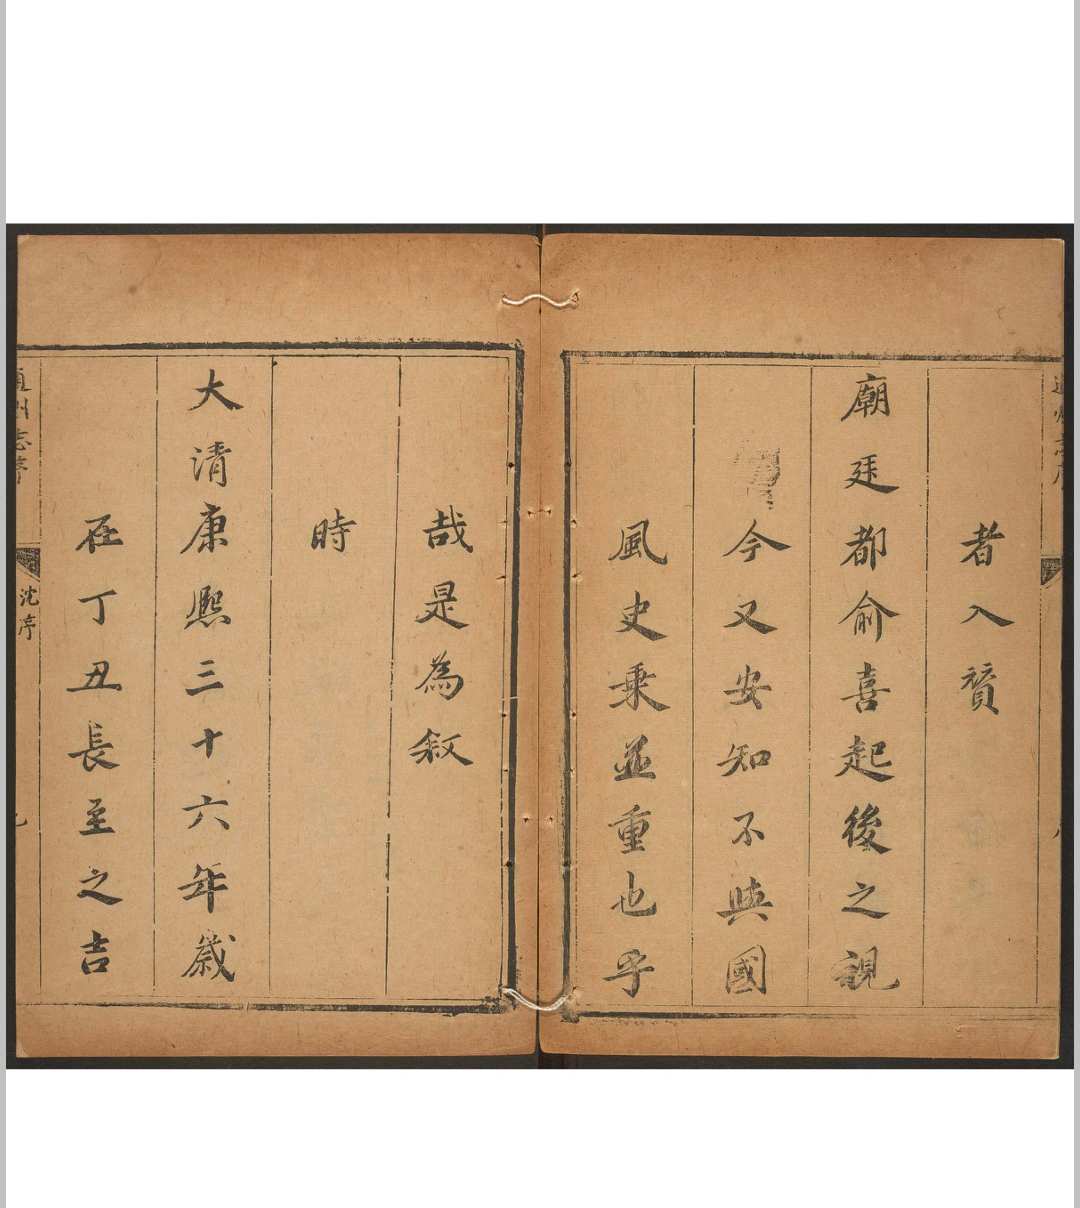 者入贊
廟廷都俞喜起後之視
今又安知不與國
風史乗並重也乎
哉是為叙
時
大清康熙三十六年歲
在丁丑長至之吉
通州志序
沈序